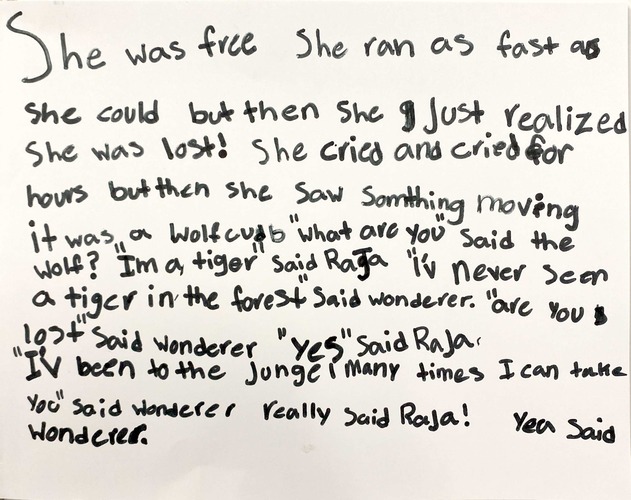 She was free She ran as fast as
she could but then she Just realized
She was lost! She cried and cried for
hours but then she saw Somthing moving
it was a Wolf cub "what are you" said the
wolf? "Im a tiger" said RaJa "i'v never seen
a tiger in the forest" said wonderer. "are you
lost" said wonderer "yes" said RaJa.
"I'V been to the Jungel many times I can take
you" said wonderer really said RaJa! Yea said
wonderer.